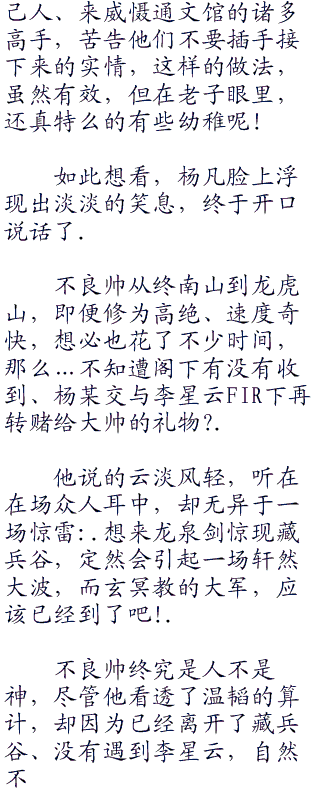 己人、来威慑通文馆的诸多
高手，苦告他们不要插手接
下来的实情，这样的做法，
虽然有效，但在老子眼里，
还真特么的有些幼稚呢！
如此想看，杨凡脸上浮
现出淡淡的笑息，终于开口
说话了．
不良帅从终南山到龙虎
山，即便修为高绝、速度奇
快，想必也花了不少时间，
那么…不知遭阁下有没有收
到、杨某交与李星云FIR下再
转赌给大帅的礼物?．
他说的云淡风轻，听在
在场众人耳中，却无异于一
场惊雷:．想来龙泉剑惊现藏
兵谷，定然会引起一场轩然
大波，而玄冥教的大军，应
该已经到了吧!．
不良帅终究是人不是
神，尽管他看透了温韬的算
计，却因为已经离开了藏兵
谷、没有遇到李星云，自然
不